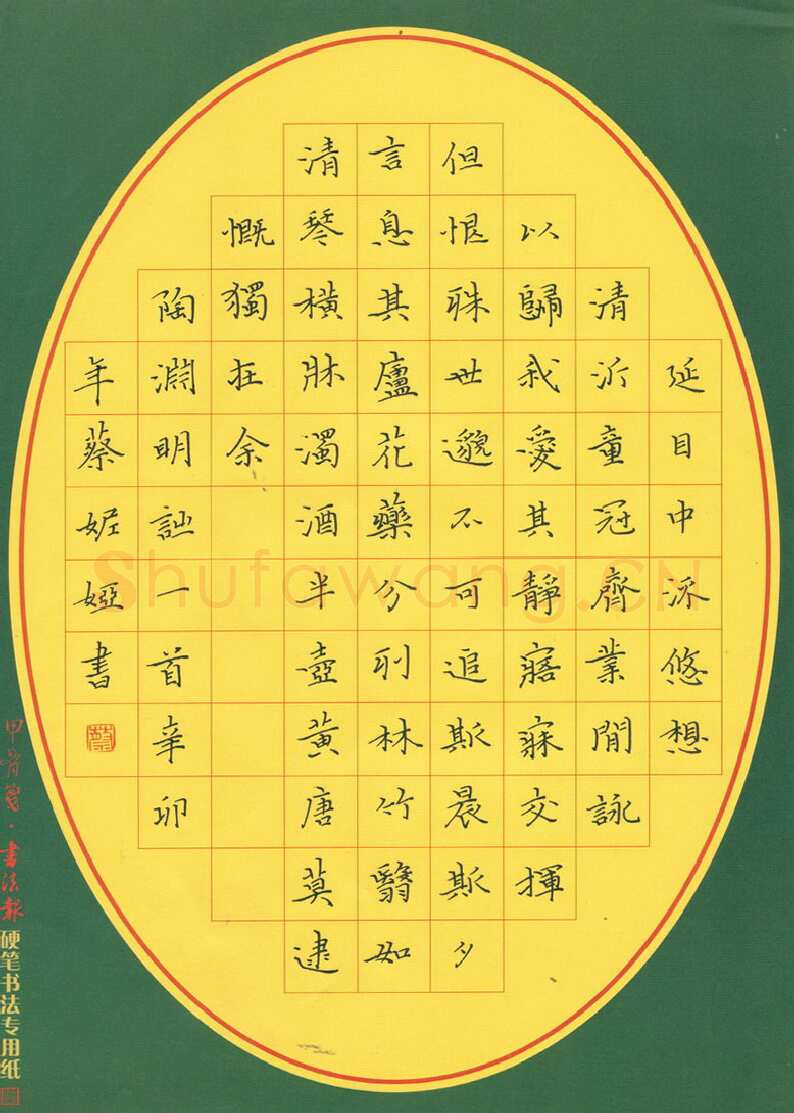 延目中流悠想
清沂童冠齊業閒詠
以歸我愛其靜寤寐交揮
但恨殊世邈不可追斯晨斯夕
言息其廬花藥分列林竹翳如
清琴橫牀濁酒半壺黃唐莫逮
慨獨在余
陶淵明詩一首辛卯
年蔡妮婭書
甲骨文·書法報
硬笔书法专用纸
Shufawang.CN